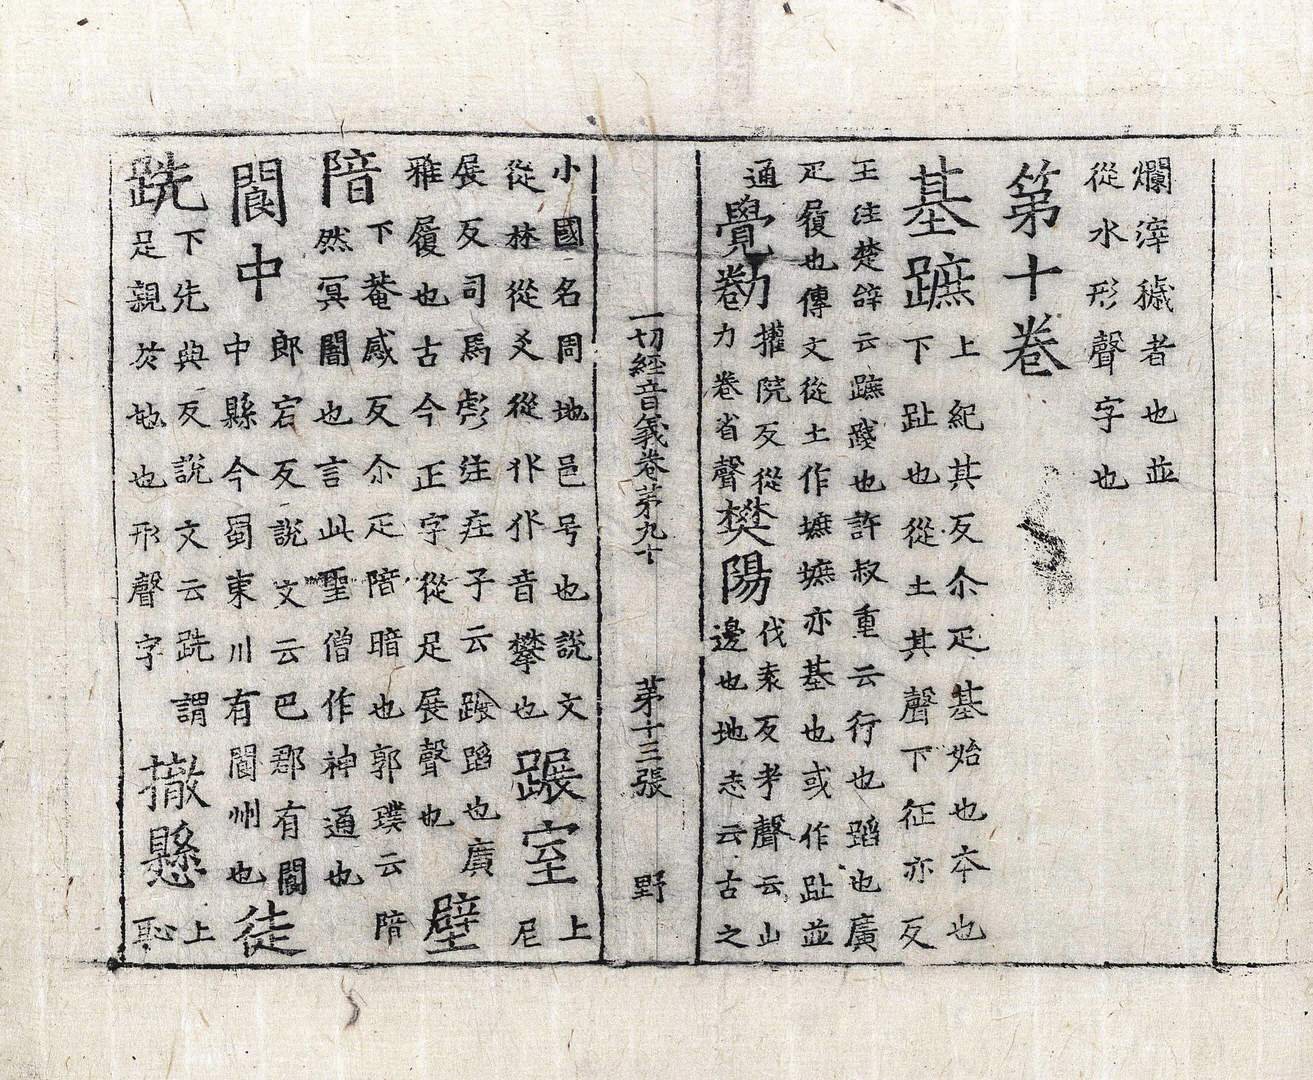 爛滓穢者也並
從水形聲字也
第十卷
基蹠
上紀其反尒疋基始也本也
下趾也從土其聲下征亦反
王注楚辝云蹠踐也許叔重云行也蹈也廣
疋履也傳文從土作墌墌亦基也或作趾並
通
覺勌
㩲院反從
力卷省聲
樊陽
伐袁反孝聲云山
邊也地志云古之
一切經音義卷苐九十 苐十三張 野
小國名周地邑号也說文
從林從爻從𠬜𠬜音攀也
蹍室
上
尼
展反司馬彪注庄子云蹍蹈也廣
雅履也古今正字從足展聲也
壁
隌
下菴感反尒疋隌暗也郭璞云隌
然冥闇也言此聖僧作神通也
閬中
郎宕反說文云巴郡有閬
中縣今蜀東川有閬州也
徒
跣
下先與反說文云跣謂
足親於地也形聲字
撤懸
上
恥